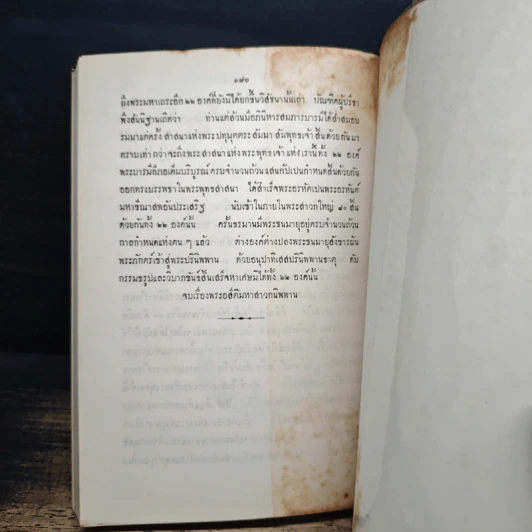 ๑๘๐
ถึงพระมหาเถระอีก ๒๒ องค์ที่ยังมิได้ยกขึ้นวิสัชนานั้นเล่า บัณฑิตผู้ปรีชา
พึงสันนิฐานเถิดว่า ท่านแต่ล้วนมีอภินิหารสมภารบารมีได้สั่งสมอบ
รมมาแต่ครั้งสาสนาแห่งพระปทุมุตตระสัมมาสัมพุทธเจ้าสิ้นด้วยกันมา
ตราบเท่ากว่าจะถึงพระสาสนาแห่งพระพุทธเจ้าแห่งเรานี้ทั้ง ๒๒ องค์
พระบารมีก็ภอเต็มบริบูรณ์ ครบจำนวนถ้วนแสนกัปเปนกำหนดสิ้นด้วยกัน
ออกทรงบรรพชาในพระพุทธสาสนา ได้สำเร็จพระอรหัตเปนพระอรหันต์
มหาขีณาสพอันประเสริฐ นับเข้าในภายในพระสาวกใหญ่ ๘๐ สิ้น
ด้วยกันทั้ง ๒๒ องค์นั้น ครั้นธรมานมีพระชนมายุอยู่ครบจำนวนถ้วน
กาลกำหนดแห่งตน ๆ แล้ว ต่างองค์ต่างปลงพระชนมายุสังขารผัน
พระภักตร์เข้าสู่พระปรินิพพาน ด้วยอนุปาทิเสสปรินิพพานธาตุ ดับ
กรรมชรูปและวิบากขันธ์สิ้นเสร็จหาเศษมิได้ทั้ง ๒๒ องค์นั้น
จบเรื่องพระอสีติมหาสาวกนิพพาน